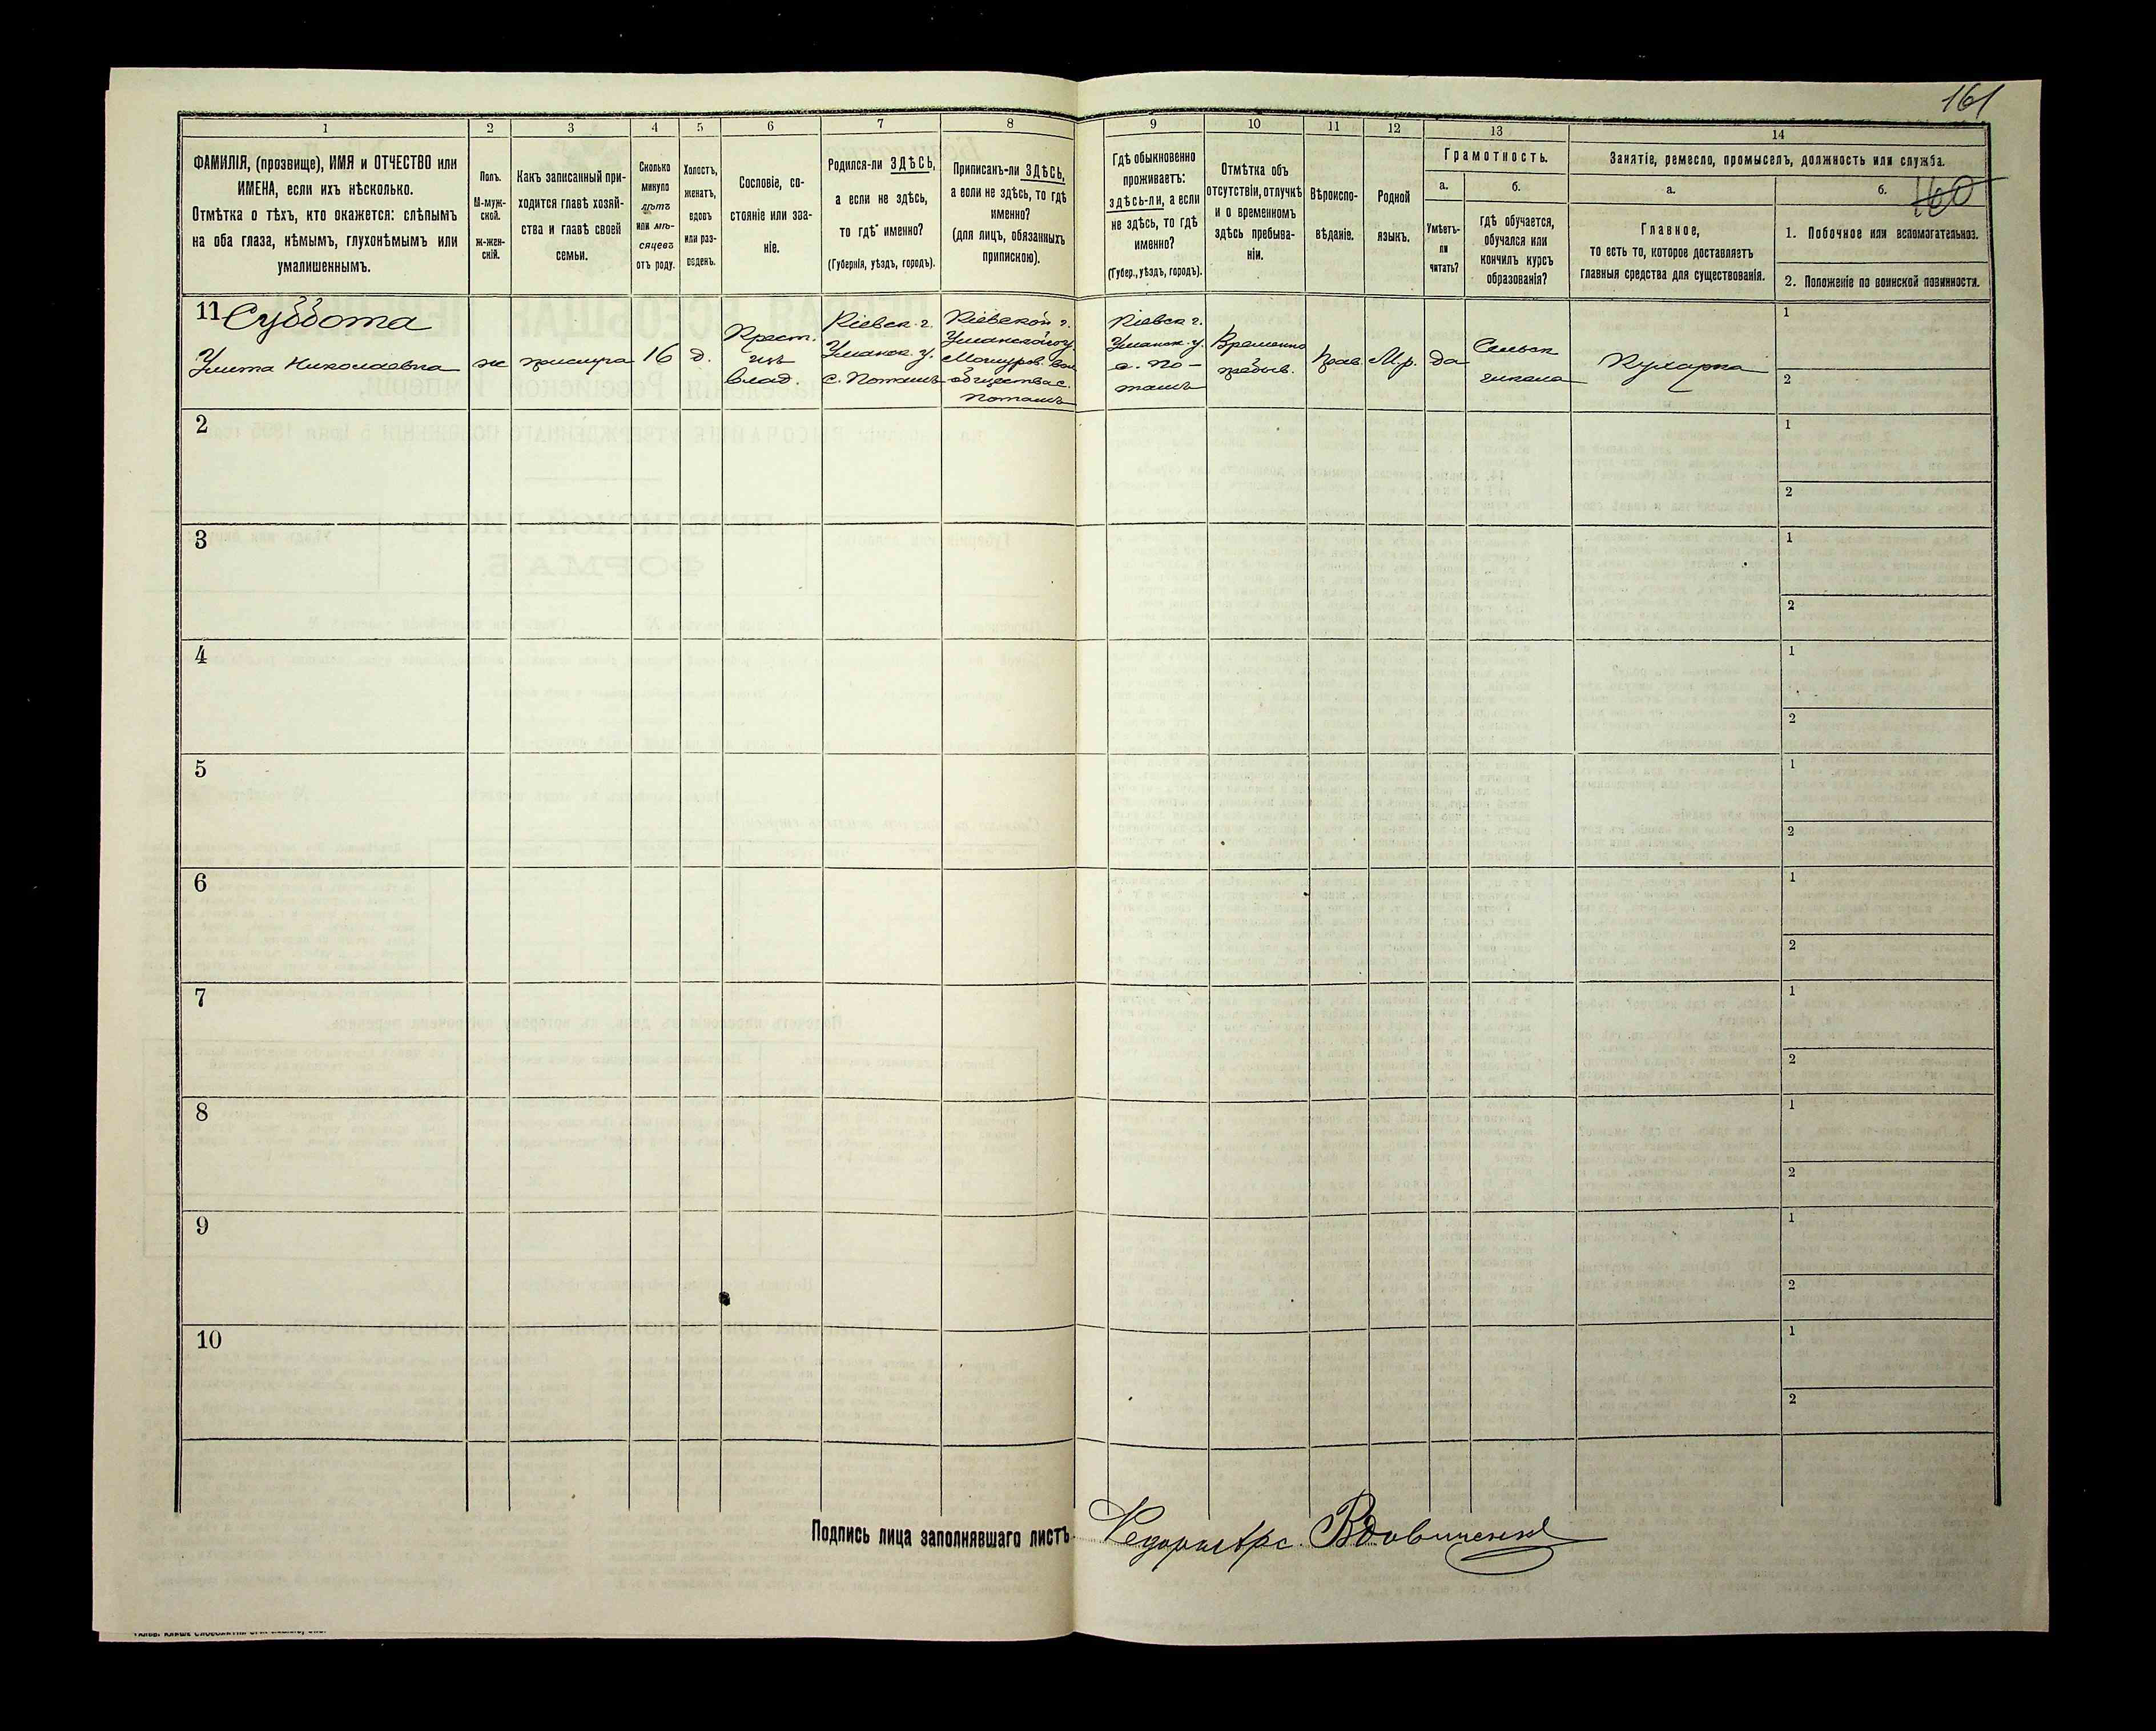 161
1
2
3
4
5
6
7
8
9
10
11
12
13
14
ФАМИЛІЯ, (прозвище), ИМЯ и ОТЧЕСТВО или
ИМЕНА, если ихъ нѣсколько.
Отмѣтка о тѣхъ, кто окажется: слѣпымъ
на оба глаза, нѣмымъ, глухонѣмымъ или
умалишеннымъ.
Полъ.
М-муж-
ской.
ж-жен-
скій.
Какъ записанный при-
ходится главѣ хозяй-
ства и главѣ своей
семьи.
Сколько
минуло
лѣтъ
или мѣ-
сяцевъ
отъ роду.
Холостъ,
женатъ,
вдовъ
или раз-
веденъ.
Сословіе, со-
стояніе или зва-
ніе.
Родился-ли ЗДѢСЬ,
а если не здѣсь,
то гдѣ именно?
(Губернія, уѣздъ, городъ).
Приписанъ-ли ЗДѢСЬ,
а если не здѣсь, то гдѣ
именно?
(для лицъ, обязанныхъ
припискою).
Гдѣ обыкновенно
проживаетъ:
здѣсь-ли, а если
не здѣсь, то гдѣ
именно?
(Губер., уѣздъ, городъ).
Отмѣтка объ
отсутствіи, отлучкѣ
и о временномъ
здѣсь пребыва-
ніи.
Вѣроиспо-
вѣданіе.
Родной
языкъ.
Грамотность.
а.
Умѣетъ-
ли
читать?
б.
гдѣ обучается,
обучался или
кончилъ курсъ
образованія?
Занятіе, ремесло, промыселъ, должность или служба.
а.
Главное,
то есть то, которое доставляетъ
главныя средства для существованія.
б.
160
1. Побочное или вспомогательное.
2. Положеніе по воинской повинности.
11 Суббота
Улита Николаевна
ж
прислуга
16
д.
Крест.
изъ
влад.
Кіевск. г.
Уманск. у.
с. Поташъ
Кіевской г.
Уманского у.
Мошуров. вол
общества с.
Поташъ
Кіевск г.
Уманск. у.
с. По-
ташъ
Временно
пребыв.
Прав.
М.р.
да
Сельск
школа
Кухарка
1
2
2
1
2
3
1
2
4
1
2
5
1
2
6
1
2
7
1
2
8
1
2
9
1
2
10
1
2
Подпись лица заполнявшаго листъ
Вдовиченко